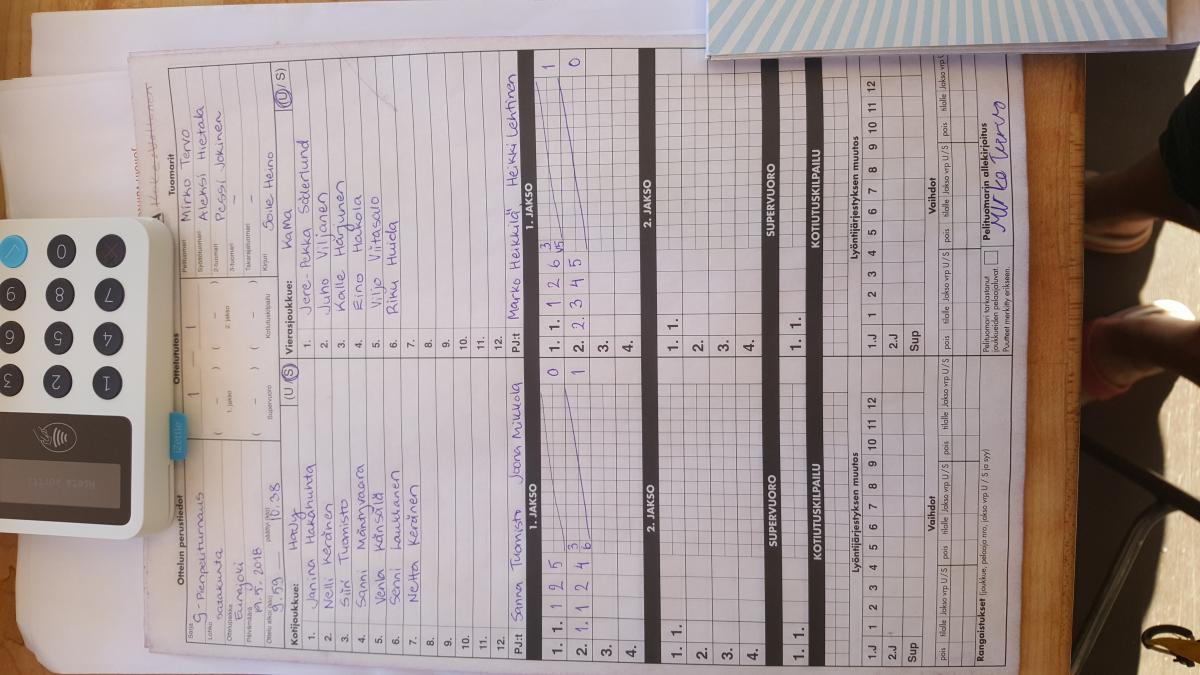 Ottelun perustiedot
Ottelutulos
Tuomarit
Sarja
G-Pienpeliturnaus
Lohko
Satakunta
Ottelupaikka
Eurajoki
Päivämäärä
Ottelu alkoi (klo) 9.59
päättyi (klo) 10.38
1 – 1
( – ) ( – )
1. jakso
2. jakso
( – ) ( – )
Supervuoro
Kotiutuskilpailu
Pelituomari Mirko Tervo
Syöttötuomari Aleksi Hietala
2-tuomari Pessi Jokinen
3-tuomari –
Takarajatuomari –
Kirjuri Soile Heino
Kotijoukkue:
(U / S)
1. Janina Hakahuhta
2. Nelli Keränen
3. Siiri Tuomisto
4. Sanni Mäntyvaara
5. Venla Känsälä
6. Senni Laukkanen
7. Netta Keränen
8.
9.
10.
11.
12.
PJ:t Sanna Tuomisto Joona Mikkola
Vierasjoukkue: KaMa (U / S)
1. Jere-Pekka Söderlund
2. Juho Viljanen
3. Kalle Harjunen
4. Eino Hakola
5. Viljo Vitasalo
6. Riku Huida
7.
8.
9.
10.
11.
12.
PJ:t Marko Heikkilä Heikki Lehtinen
1. JAKSO
1. 1. 1 2 5 0
2. 1. 1 2 4 1
3.
4.
1. JAKSO
1. 1. 1 2 6 1
2. 2. 3 4 5 0
3.
4.
2. JAKSO
1. 1.
2.
3.
4.
2. JAKSO
1. 1.
2.
3.
4.
SUPERVUORO
1. 1.
SUPERVUORO
1. 1.
KOTIUTUSKILPAILU
KOTIUTUSKILPAILU
Lyöntijärjestyksen muutos
1.J 1 2 3 4 5 6 7 8 9 10 11 12
2.J
Sup
Lyöntijärjestyksen muutos
1.J 1 2 3 4 5 6 7 8 9 10 11 12
2.J
Sup
Vaihdot
pois tilalle Jakso vrp U / S pois tilalle Jakso vrp U / S pois tilalle Jakso vrp U / S
Vaihdot
pois tilalle Jakso vrp U / S pois tilalle Jakso vrp U / S pois tilalle Jakso vrp U / S
Rangaistukset (joukkue, pelaaja nro, jakso vrp U / S ja syy)
Pelituomari tarkastanut
joukkueiden pelaajaluvat.
Puutteet merkitty erikseen.
Pelituomarin allekirjoitus
Mirko Tervo
iZettle
1 2 3
4 5 6
7 8 9
0